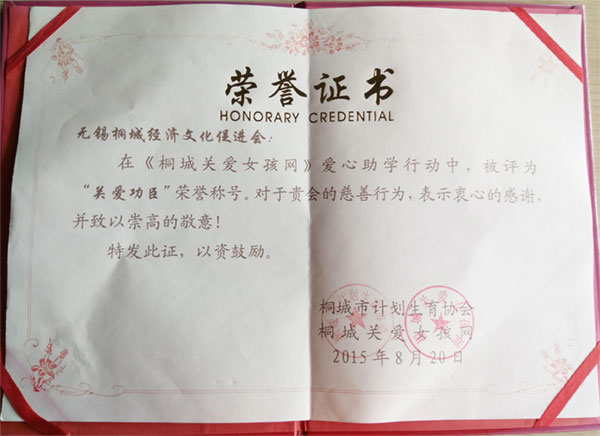 荣誉证书
HONORARY CREDENTIAL
无锡桐城经济文化促进会：
在《桐城关爱女孩网》爱心助学行动中，被评为
“关爱功臣”荣誉称号。对于贵会的慈善行为，表示衷心的感谢，
并致以崇高的敬意！
特发此证，以资鼓励。
桐城市计划生育协会
桐城关爱女孩网
2015年8月20日